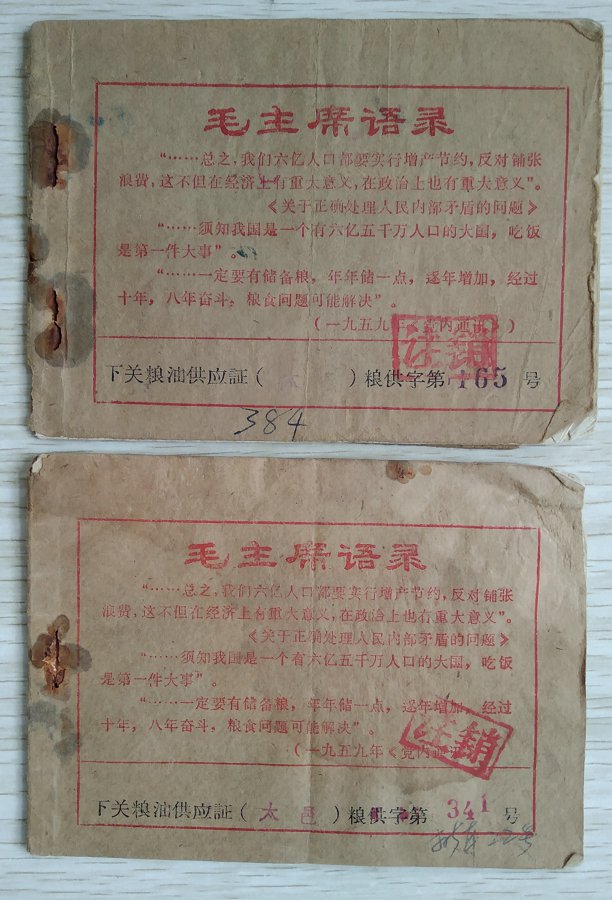 毛主席语录
“……总之，我们六亿人口都要实行增产节约，反对铺张
浪费，这不但在经济上有重大意义，在政治上也有重大意义”。
《关于正确处理人民内部矛盾的问题》
“……须知我国是一个有六亿五千万人口的大国，吃饭
是第一件大事”。
“……一定要有储备粮，年年储一点，逐年增加，经过
十年，八年奋斗，粮食问题可能解决”。
（一九五九年《党内通讯》）
注銷
下关粮油供应証（太 ）粮供字第165号
384
毛主席语录
“……总之，我们六亿人口都要实行增产节约，反对铺张
浪费，这不但在经济上有重大意义，在政治上也有重大意义”。
《关于正确处理人民内部矛盾的问题》
“……须知我国是一个有六亿五千万人口的大国，吃饭
是第一件大事”。
“……一定要有储备粮，年年储一点，逐年增加，经过
十年，八年奋斗，粮食问题可能解决”。
（一九五九年《党内通讯
注銷
下关粮油供应証（太邑）粮供字第341号
号